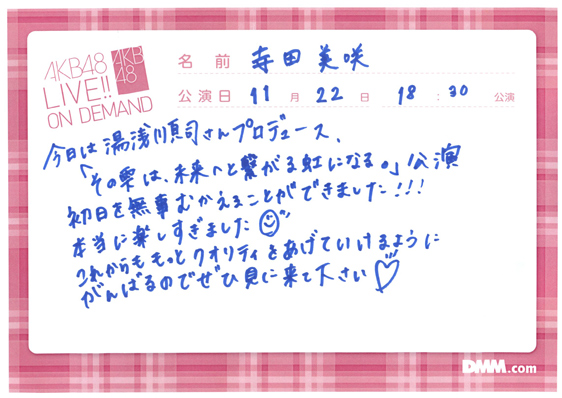 AKB48
LIVE!!
ON DEMAND
AKB
48
名前 寺田美咲
公演日 11月22日 18:30公演
今日は湯浅順司さんプロデュース、
「その雫は、未来へと繋がる虹になる。」公演
初日を無事むかえることができました!!!
本当に楽しすぎました
これからももっとクオリティをあげていけるように
がんばるのでぜひ見に来て下さい♡
DMM.com